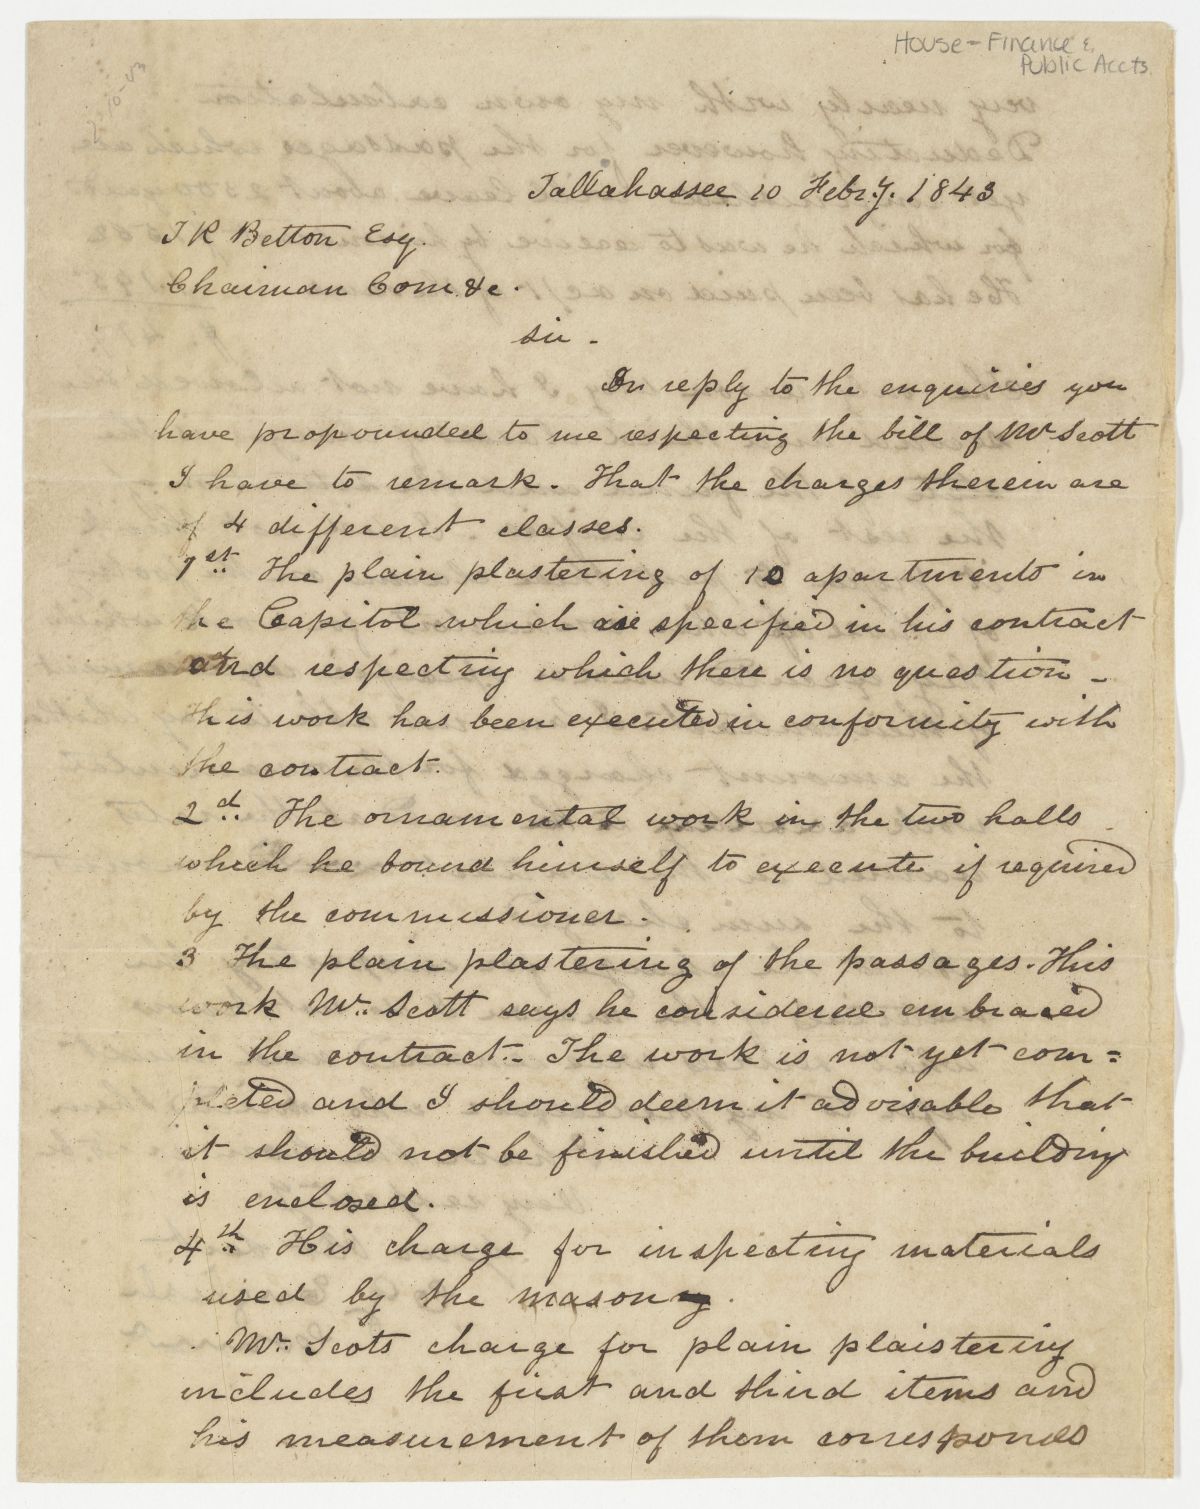 House - Finance &
Public Accts
Tallahassee 10 Febry. 1843
T R Betton Esq.
Chairman Com &c.
Sir -
In reply to the enquiries you
have propounded to me respecting the bill of Mr Scott
I have to remark. That the charges therein are
of 4 different classes.
1st The plain plastering of 10 apartments in
the Capitol which are specified in his contract
and respecting which there is no question -
This work has been executed in conformity with
the contract.
2d The ornamental work in the two halls
which he bound himself to execute if required
by the commissioner.
3 The plain plastering of the passages. This
work Mr. Scott says he considered embraced
in the contract. The work is not yet com=
pleted and I should deem it advisable that
it should not be finished until the building
is enclosed.
4th His charge for inspecting materials
used by the mason.
Mr. Scots charge for plain plaistering
includes the first and third items and
his measurement of them corresponds